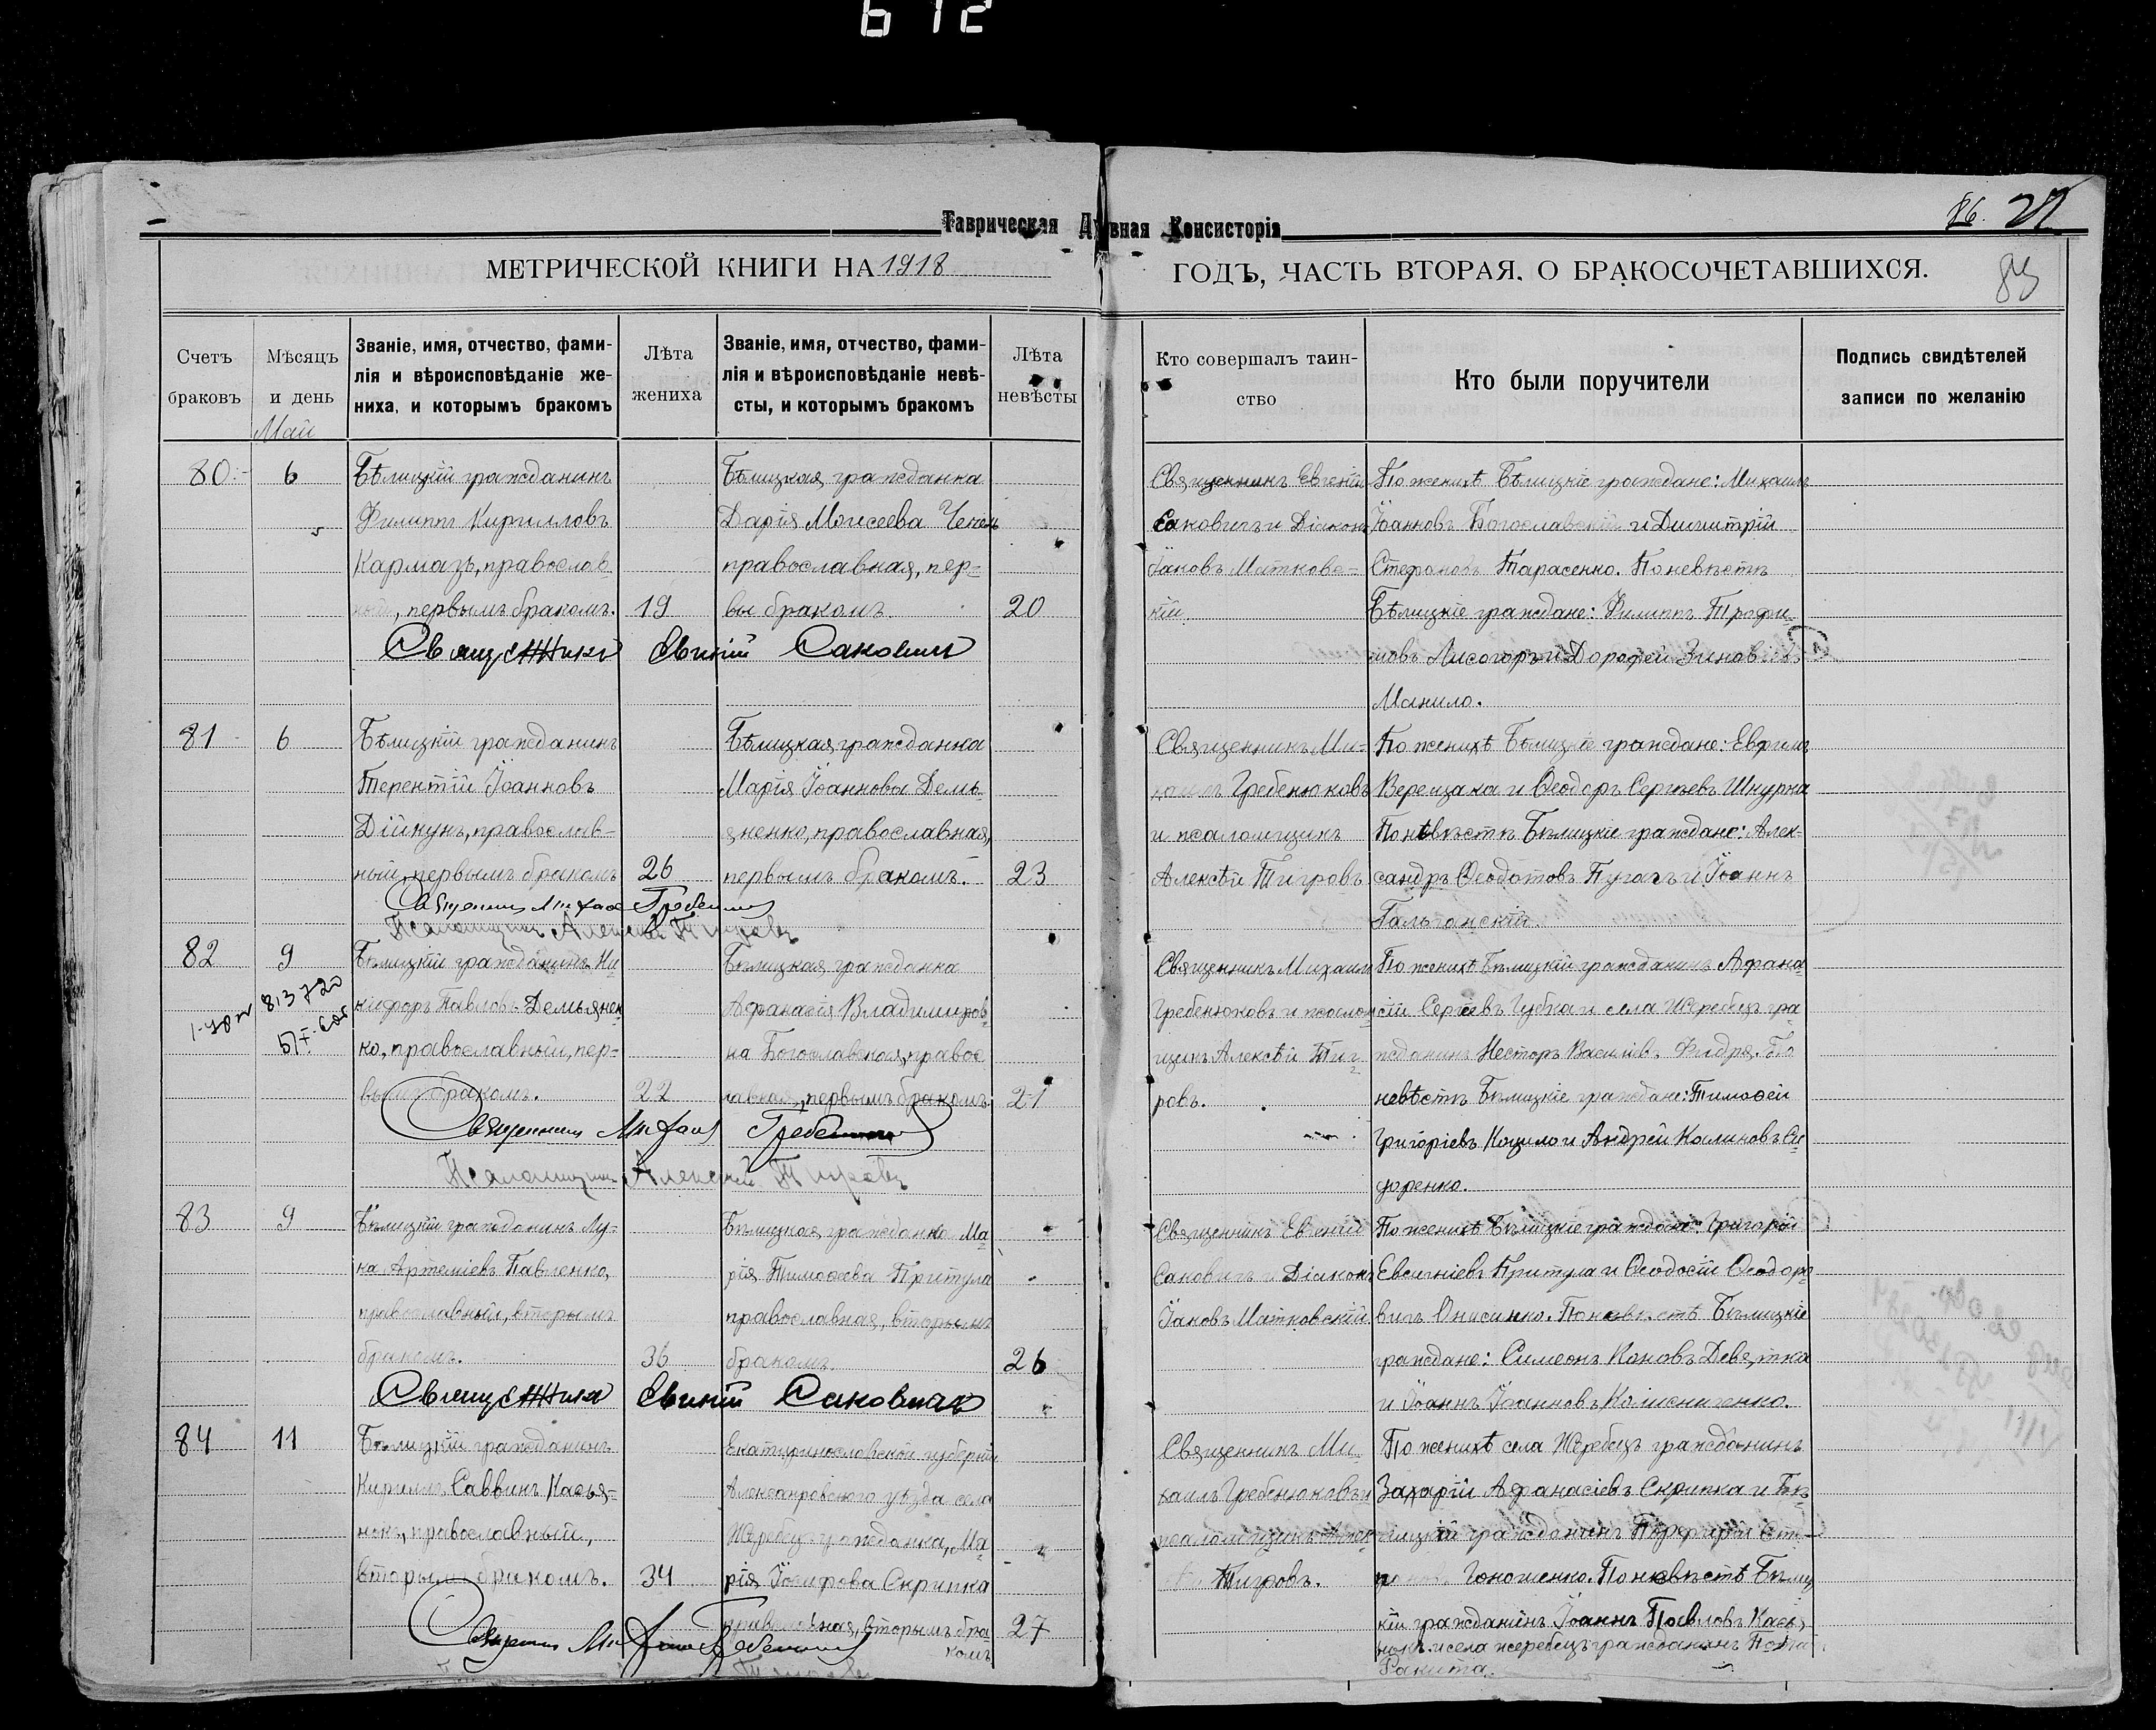 612
Таврическая Духвная Консисторія
86. 27
МЕТРИЧЕСКОЙ КНИГИ НА 1918
ГОДЪ, ЧАСТЬ ВТОРАЯ, О БРАКОСОЧЕТАВШИХСЯ.
Счетъ браковъ
Мѣсяцъ и день
Званіе, имя, отчество, фами-
лія и вѣроисповѣданіе же-
ниха, и которымъ бракомъ
Лѣта жениха
Званіе, имя, отчество, фами-
лія и вѣроисповѣданіе невѣ-
сты, и которымъ бракомъ
Лѣта невѣсты
Кто совершалъ таин-
ство
Кто были поручители
Подпись свидѣтелей
записи по желанію
Май
80
6
Бѣлицкій гражданинъ
Филиппъ Кирилловъ
Кармазъ, православ-
ный, первымъ бракомъ.
19
Бѣлицкая гражданка
Дарія Моисеева
православная, пер-
вы бракомъ
20
Священникъ Евгеній
Саковичъ и Діаконъ
Іаковъ Матковс-
кій
По женихѣ Бѣлицкіе граждане: Михаилъ
Іоанновъ Богославскій и Димитрій
Стефановъ Тарасенко. По невѣстѣ
Бѣлицкіе граждане: Филиппъ Трофи-
мовъ Лисогоръ и Дорофей Зиновіевъ
Манило.
Священникъ Евгеній Саковичъ
81
6
Бѣлицкій гражданинъ
Терентій Іоанновъ
Дійкунъ, православ-
ный, первымъ бракомъ
26
Бѣлицкая гражданка
Марія Іоаннова Демь-
яненко, православная,
первымъ бракомъ.
23
Священникъ Ми-
хаилъ Гребенюковъ
и псаломщикъ
Алексѣй Тигровъ
По женихѣ Бѣлицкіе граждане: Ефримъ
Верещака и Ѳеодоръ Сергѣевъ Шнурка
По невѣстѣ Бѣлицкіе граждане: Алек-
сандръ Ѳеодотовъ Пугачъ и Іоаннъ
Гальчанскій.
Священникъ Михаилъ Гребенюковъ
Псаломщикъ Алексѣй Тигровъ
82
9
813720
Бѣлицкій гражданинъ Ни
кифоръ Павловъ Демьянен
ко, православный, пер-
вымъ бракомъ.
22
Бѣлицкая гражданка
Афанасія Владимиров
на Богославская, правос
лавная, первымъ бракомъ
21
Священникъ Михаилъ
Гребенюковъ и псалом
щикъ Алексѣй Тиг-
ровъ.
По женихѣ Бѣлицкій гражданинъ Афана
сій Сергѣевъ Губка и села Жеребецъ гра
жданинъ Несторъ Василіевъ Фидря. По
невѣстѣ Бѣлицкіе граждане: Тимоѳей
Григоріевъ Коцило и Андрей Калиновъ Си
доренко.
Священникъ Михаилъ Гребенюковъ
Псаломщикъ Алексѣй Тигровъ
83
9
Бѣлицкій гражданинъ Лу-
ка Артеміевъ Павленко,
православный, вторымъ
бракомъ.
36
Бѣлицкая гражданка Ма
рія Тимоѳеева Притула
православная, вторымъ
бракомъ
26
Священникъ Евгеній
Саковичъ и Діаконъ
Іаковъ Матковскій
По женихѣ Бѣлицкіе граждане: Григорій
Евсигніевъ Притула и Ѳеодосій Ѳеодоро
вичъ Онисенко. По невѣстѣ Бѣлицкіе
граждане: Симеонъ Коновъ Девятка
и Іоаннъ Іоанновъ Колесниченко.
Священникъ Евгеній Саковичъ
84
11
Бѣлицкій гражданинъ
Кириллъ Саввинъ Касья-
нокъ, православный,
вторымъ бракомъ.
34
Екатеринославской губерніи
Александровскаго уѣзда села
Жеребецъ гражданка, Ма
рія Іосифова Скрипка
православная, вторымъ бра-
комъ
27
Священникъ Ми-
хаилъ Гребенюковъ и
псаломщикъ Алек
Тигровъ.
По женихѣ села Жеребецъ гражданинъ
Захарій Афанасіевъ Скрипка и Бѣ
лицкій гражданинъ Порфирій
Гоношенко. По невѣстѣ Бѣлиц
кій гражданинъ Іоаннъ Павловъ Кась
нокъ и села жеребецъ гражданинъ
Ракита.
Священникъ Михаилъ Гребенюковъ